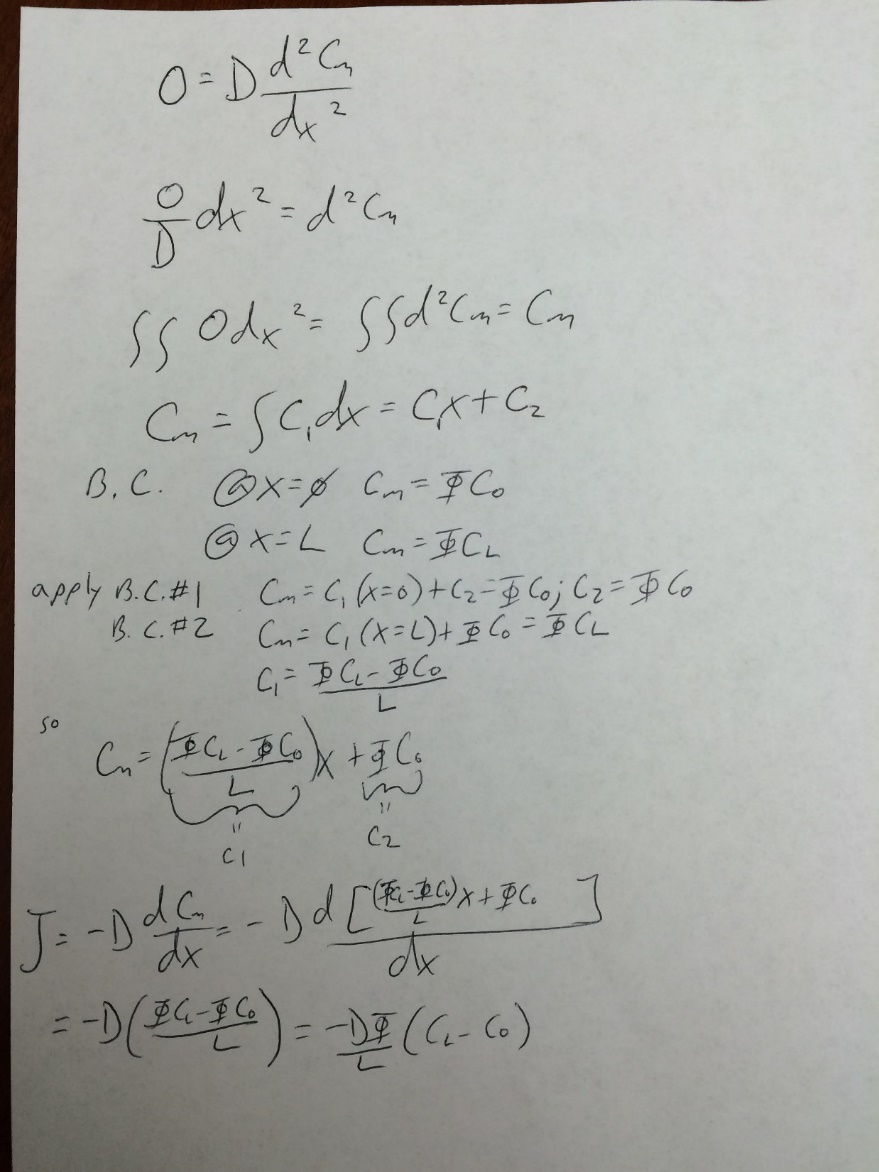 O = D d²Cm/dx²
O/D dx² = d²Cm
∫∫ O dx² = ∫∫ d²Cm = Cm
Cm = ∫ C₁dx = C₁x + C₂
B.C. @ x = ∅ Cm = ΦC₀
@ x = L Cm = ΦCL
apply B.C.#1 Cm = C₁(x=0) + C₂ = ΦC₀; C₂ = ΦC₀
B.C.#2 Cm = C₁(x=L) + ΦC₀ = ΦCL
C₁ = (ΦCL - ΦC₀)/L
so
Cm = ((ΦCL - ΦC₀)/L)x + ΦC₀
" "
C1 C2
J = -D dCm/dx = -D d[((ΦCL-ΦC₀)/L)x + ΦC₀]/dx
= -D((ΦCL-ΦC₀)/L) = -DΦ/L (CL - C₀)